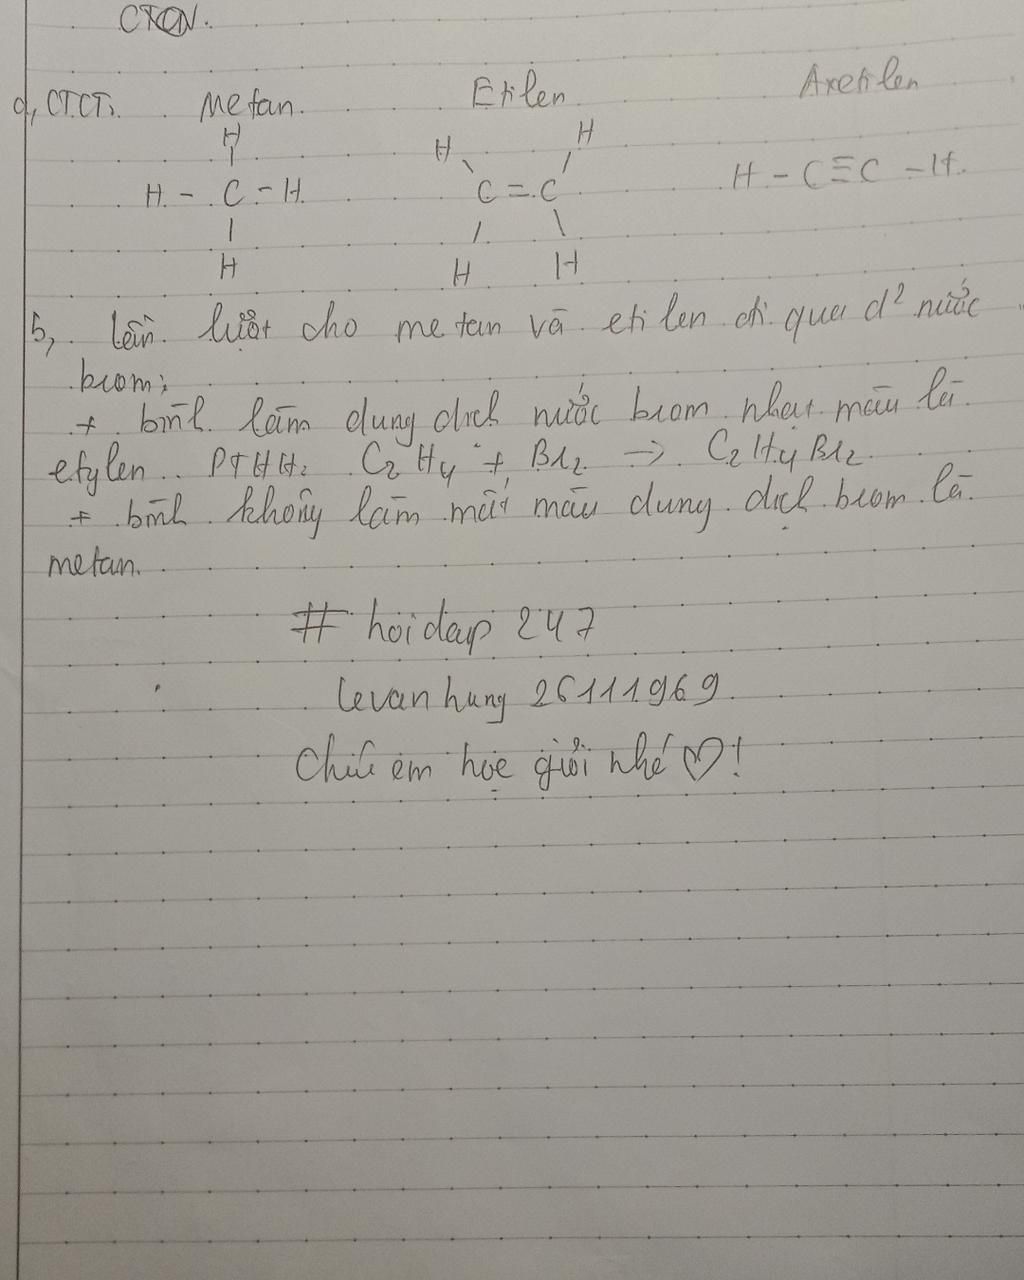 CTCN.
a, CTCT: Metan. Etilen Axetilen
H H H
H - C - H. C = C H - C ≡ C - H.
H H H
b, lần lượt cho metan và etilen đi qua d² nước
brom:
+ bình làm dung dịch nước brom nhạt màu là
etylen. PTHH: C2H4 + Br2 → C2H4Br2
+ bình không làm mất màu dung dịch brom là
metan.
# hoidap 247
levanhung 26111969
Chúc em học giỏi nhé ♡!